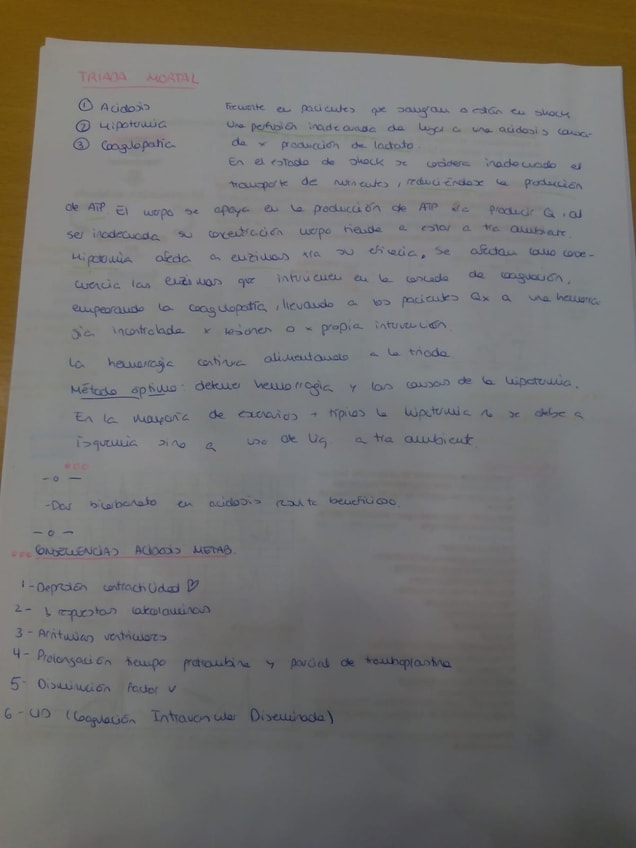 TRIADA MORTAL
① Acidosis
② Hipotermia
③ Coagulopatía
Frecuente en pacientes que sangran o están en shock
Una perfusión inadecuada da lugar a una acidosis causa-
da x producción de lactato.
En el estado de shock se considera inadecuado el
transporte de nutrientes, reduciéndose la producción
de ATP. El cuerpo se apoya en la producción de ATP para producir Q, al
ser inadecuada su concentración cuerpo tiende a estar a tra ambiente.
Hipotermia afecta a enzimas y su eficacia. Se afectan como conse-
cuencia las enzimas que intervienen en la cascada de coagulación,
empeorando la coagulopatía, llevando a los pacientes Qx a una hemorra
gia incontrolada x lesiones o x propia intervención.
La hemorragia continua alimentando a la triada
Método óptimo: detener hemorragia y las causas de la hipotermia.
En la mayoría de escenarios + típicos la hipotermia no se debe a
isquemia sino a uso de liq a tra ambiente
- o -
-Dar bicarbonato en acidosis resulta beneficioso.
- o -
CONSECUENCIAS ACIDOSIS METAB.
1- Depresión contractilidad ♡
2- ↓ respuestas catecolaminas
3- Arritmias ventriculares
4- Prolongación tiempo protrombina y parcial de tromboplastina
5- Disminución factor V
6- CID (Coagulación Intravascular Diseminada)